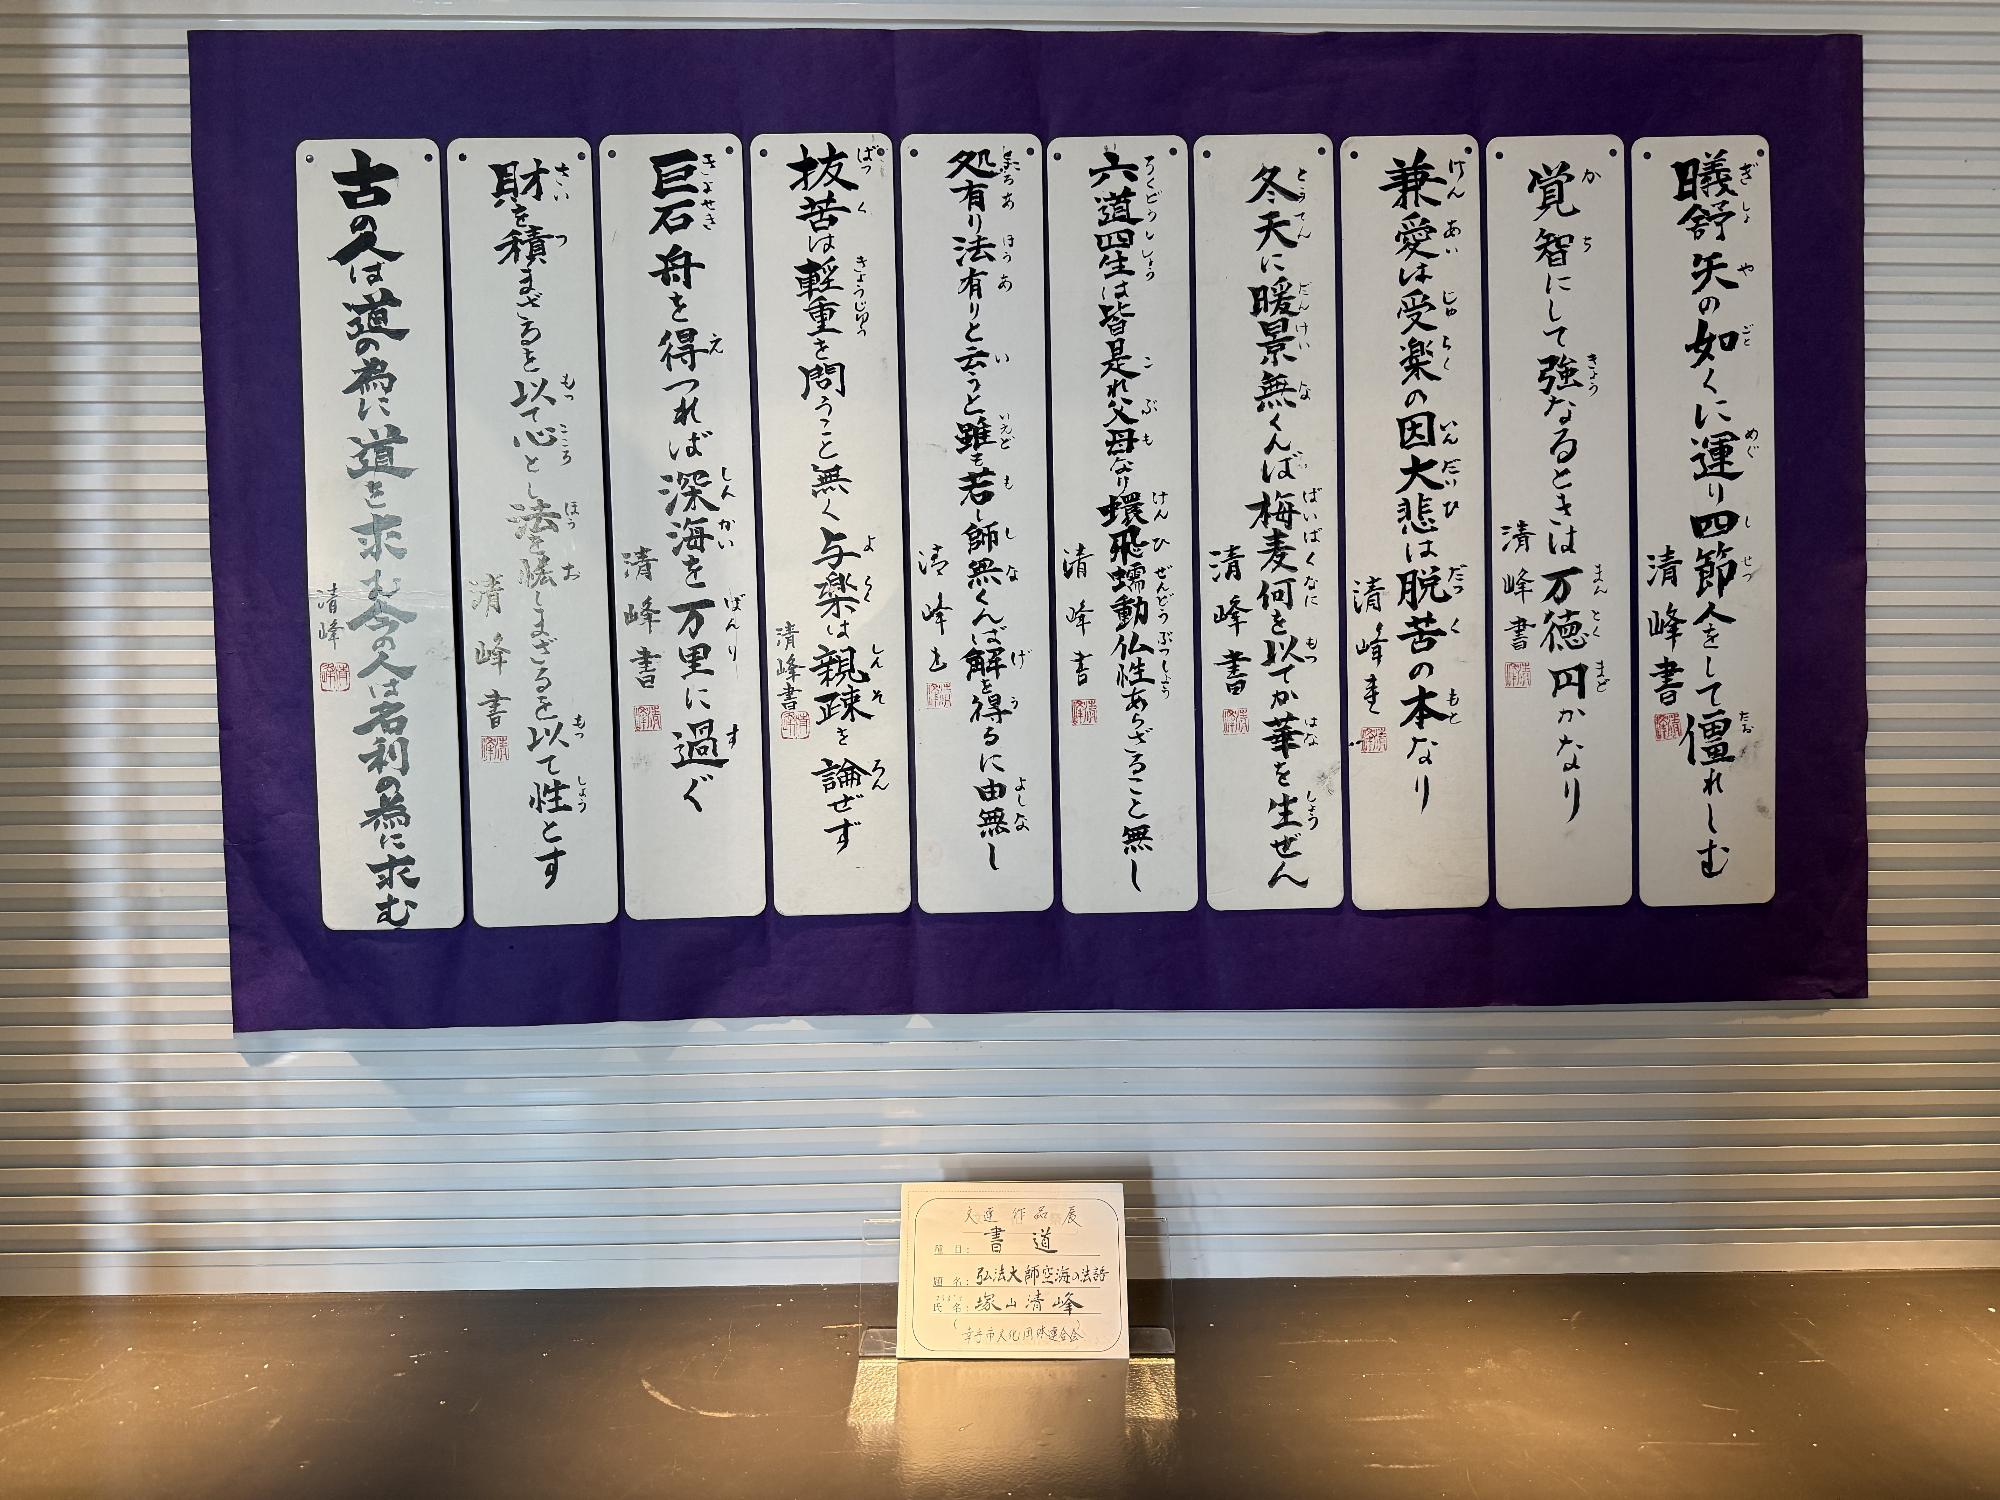 曦舒矢の如くに運り四節人をして僵れしむ
清峰書
覚智にして強なるときは万徳円かなり
清峰書
兼愛は受楽の因大悲は脱苦の本なり
清峰書
冬天に暖景無くんば梅麦何を以てか華を生ぜん
清峰書
六道四生は皆是れ父母なり蠉飛蠕動仏性あらざること無し
清峰書
処有り法有りと云うと雖も若し師無くんば解を得るに由無し
清峰書
抜苦は軽重を問うこと無く与楽は親疎を論ぜず
清峰書
巨石舟を得つれば深海を万里に過ぐ
清峰書
財を積まざるを以て心とし法を慳しまざるを以て性とす
清峰書
古の人は道の為に道を求む今の人は名利の為に求む
清峰
文連作品展
種目：書道
題名：弘法大師空海の法語
氏名：塚山清峰
（幸手市文化団体連合会）